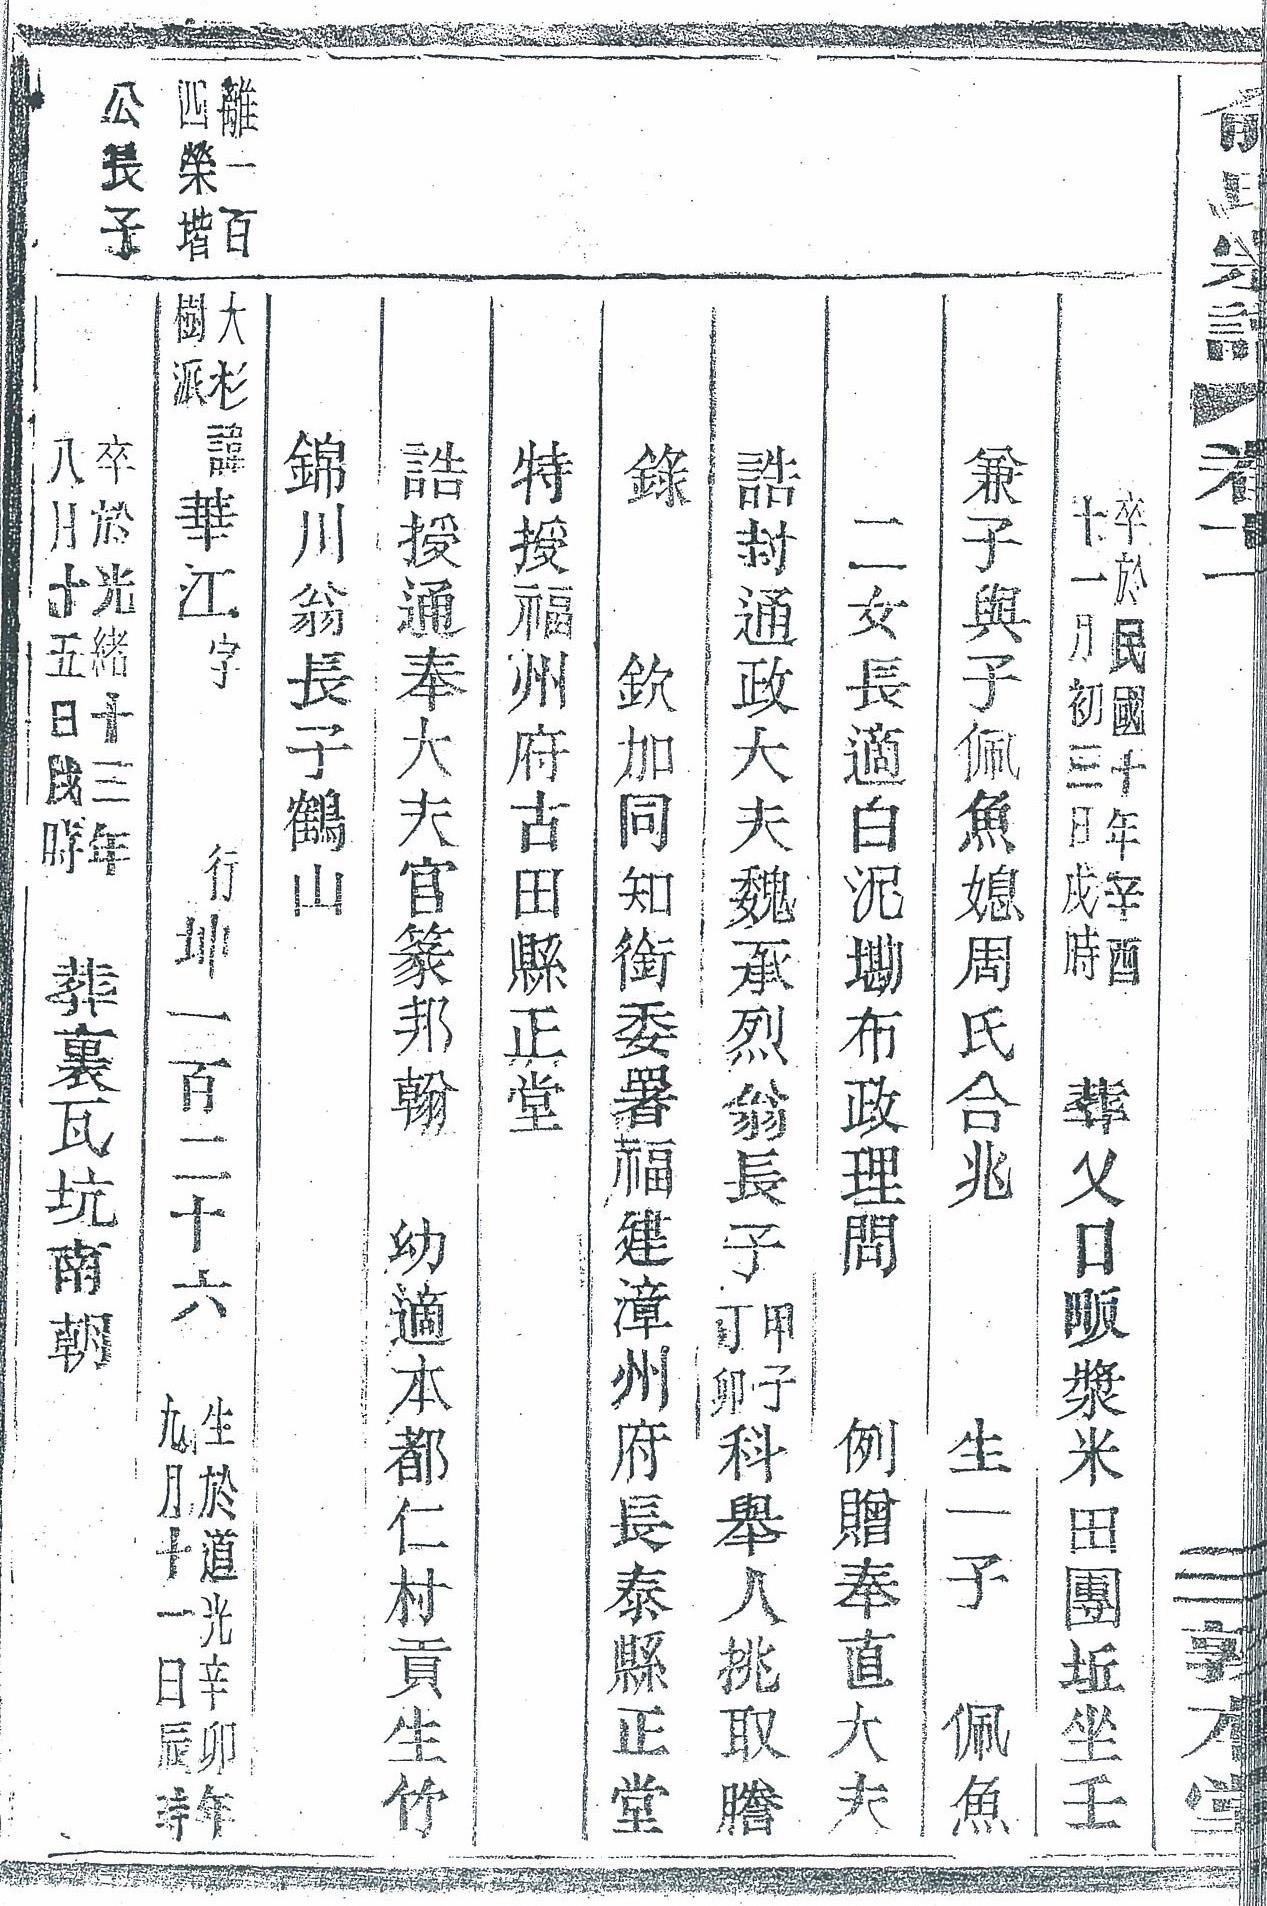 俞氏宗譜 卷一 三 敦本堂
卒於民國十年辛酉
十一月初三日戌時
葬父口㽏漿米田團坵坐壬
兼子與子佩魚媳周氏合兆 生一子 佩魚
二女長適白泥墈布政理問 例贈奉直大夫
誥封通政大夫魏承烈翁長子
甲子
丁卯
科舉人挑取謄
錄 欽加同知銜委署福建漳州府長泰縣正堂
特授福州府古田縣正堂
誥授通奉大夫官篆邦翰 幼適本都仁村貢生竹
錦川翁長子鶴山
離一百
四榮堦
公長子
大杉
樹派
諱華江字 行坤一百二十六
生於道光辛卯年
九月十一日辰時
卒於光緒十三年
八月十五日戌時
葬裏瓦坑南朝